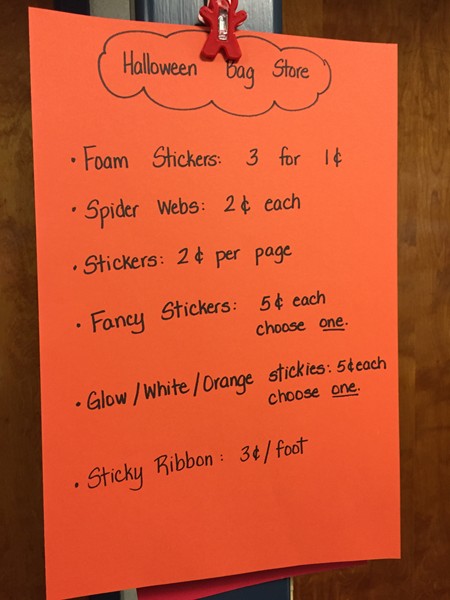 Halloween Bag Store
• Foam Stickers: 3 for 1¢
• Spider Webs: 2¢ each
• Stickers: 2¢ per page
• Fancy Stickers: 5¢ each
choose one.
• Glow/White/Orange stickies: 5¢ each
choose one.
• Sticky Ribbon: 3¢/foot